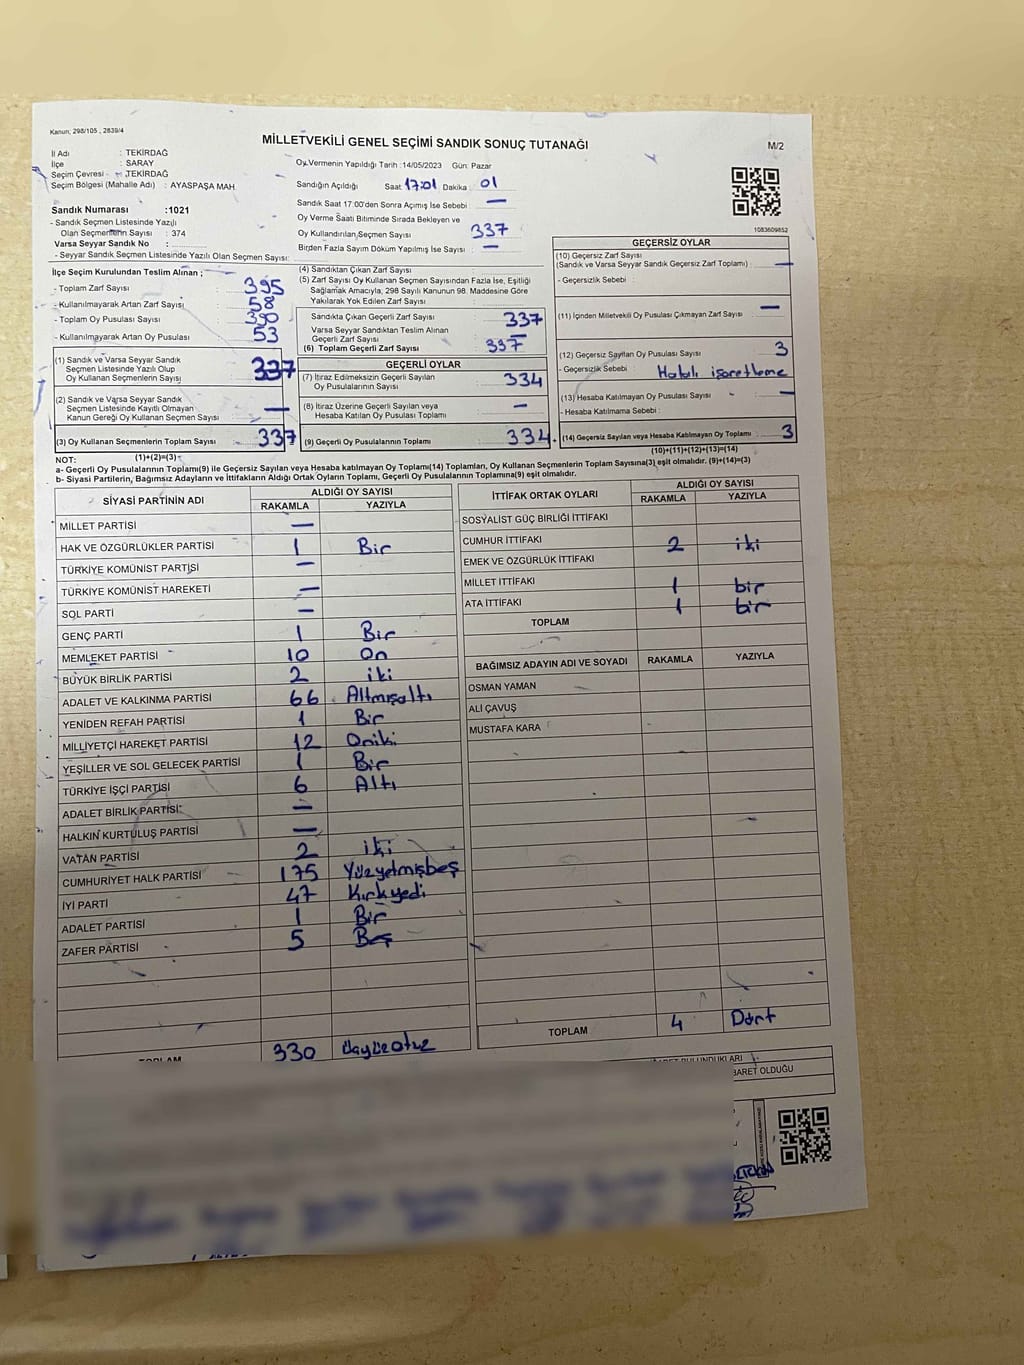 Kanun; 298/105 , 2839/4
MİLLETVEKİLİ GENEL SEÇİMİ SANDIK SONUÇ TUTANAĞI
M/2
İl Adı : TEKİRDAĞ
İlçe : SARAY
Seçim Çevresi : TEKİRDAĞ
Seçim Bölgesi (Mahalle Adı) : AYASPAŞA MAH.
Sandık Numarası :1021
- Sandık Seçmen Listesinde Yazılı
Olan Seçmenlerin Sayısı : 374
Varsa Seyyar Sandık No :
- Seyyar Sandık Seçmen Listesinde Yazılı Olan Seçmen Sayısı:
Oy Vermenin Yapıldığı Tarih :14/05/2023 Gün: Pazar
Sandığın Açıldığı Saat 17:01 Dakika : 01
Sandık Saat 17.00'den Sonra Açımış İse Sebebi : —
Oy Verme Saati Bitiminde Sırada Bekleyen ve
Oy Kullandırılan Seçmen Sayısı 337
Birden Fazla Sayım Döküm Yapılmış İse Sayısı : —
1083609852
İlçe Seçim Kurulundan Teslim Alınan ;
- Toplam Zarf Sayısı : 395
- Kullanılmayarak Artan Zarf Sayısı : 58
- Toplam Oy Pusulası Sayısı : 390
- Kullanılmayarak Artan Oy Pusulası : 53
(1) Sandık ve Varsa Seyyar Sandık
Seçmen Listesinde Yazılı Olup
Oy Kullanan Seçmenlerin Sayısı 337
(2) Sandık ve Varsa Seyyar Sandık
Seçmen Listesinde Kayıtlı Olmayan
Kanun Gereği Oy Kullanan Seçmen Sayısı —
(3) Oy Kullanan Seçmenlerin Toplam Sayısı : 337
(1)+(2)=(3)
(4) Sandıktan Çıkan Zarf Sayısı :
(5) Zarf Sayısı Oy Kullanan Seçmen Sayısından Fazla İse, Eşitliği
Sağlamak Amacıyla, 298 Sayılı Kanunun 98. Maddesine Göre
Yakılarak Yok Edilen Zarf Sayısı :
Sandıkta Çıkan Geçerli Zarf Sayısı : 337
Varsa Seyyar Sandıktan Teslim Alınan
Geçerli Zarf Sayısı : —
(6) Toplam Geçerli Zarf Sayısı : 337
GEÇERLİ OYLAR
(7) İtiraz Edilmeksizin Geçerli Sayılan
Oy Pusulalarının Sayısı : 334
(8) İtiraz Üzerine Geçerli Sayılan veya
Hesaba Katılan Oy Pusulası Toplamı : —
(9) Geçerli Oy Pusulalarının Toplamı : 334
GEÇERSİZ OYLAR
(10) Geçersiz Zarf Sayısı
(Sandık ve Varsa Seyyar Sandık Geçersiz Zarf Toplamı) : —
- Geçersizlik Sebebi :
(11) İçinden Milletvekili Oy Pusulası Çıkmayan Zarf Sayısı : —
(12) Geçersiz Sayılan Oy Pusulası Sayısı : 3
- Geçersizlik Sebebi : Hatalı işaretleme
(13) Hesaba Katılmayan Oy Pusulası Sayısı : —
- Hesaba Katılmama Sebebi :
(14) Geçersiz Sayılan veya Hesaba Katılmayan Oy Toplamı : 3
(10)+(11)+(12)+(13)=(14)
NOT:
a- Geçerli Oy Pusulalarının Toplamı(9) ile Geçersiz Sayılan veya Hesaba katılmayan Oy Toplamı(14) Toplamları, Oy Kullanan Seçmenlerin Toplam Sayısına(3) eşit olmalıdır. (9)+(14)=(3)
b- Siyasi Partilerin, Bağımsız Adayların ve İttifakların Aldığı Ortak Oyların Toplamı, Geçerli Oy Pusulalarının Toplamına(9) eşit olmalıdır.
SİYASİ PARTİNİN ADI ALDIĞI OY SAYISI
RAKAMLA YAZIYLA
MİLLET PARTİSİ —
HAK VE ÖZGÜRLÜKLER PARTİSİ 1 Bir
TÜRKİYE KOMÜNİST PARTİSİ —
TÜRKİYE KOMÜNİST HAREKETİ —
SOL PARTİ —
GENÇ PARTİ 1 Bir
MEMLEKET PARTİSİ 10 On
BÜYÜK BİRLİK PARTİSİ 2 iki
ADALET VE KALKINMA PARTİSİ 66 Altmışaltı
YENİDEN REFAH PARTİSİ 1 Bir
MİLLİYETÇİ HAREKET PARTİSİ 12 Oniki
YEŞİLLER VE SOL GELECEK PARTİSİ 1 Bir
TÜRKİYE İŞÇİ PARTİSİ 6 Altı
ADALET BİRLİK PARTİSİ —
HALKIN KURTULUŞ PARTİSİ —
VATAN PARTİSİ 2 iki
CUMHURİYET HALK PARTİSİ 175 Yüzyetmişbeş
İYİ PARTİ 47 Kırkyedi
ADALET PARTİSİ 1 Bir
ZAFER PARTİSİ 5 Beş
TOPLAM 330 üçyüzotuz
İTTİFAK ORTAK OYLARI ALDIĞI OY SAYISI
RAKAMLA YAZIYLA
SOSYALİST GÜÇ BİRLİĞİ İTTİFAKI
CUMHUR İTTİFAKI 2 iki
EMEK VE ÖZGÜRLÜK İTTİFAKI
MİLLET İTTİFAKI 1 bir
ATA İTTİFAKI 1 bir
TOPLAM
BAĞIMSIZ ADAYIN ADI VE SOYADI RAKAMLA YAZIYLA
OSMAN YAMAN
ALİ ÇAVUŞ
MUSTAFA KARA
TOPLAM 4 Dört
BARET OLDUĞU